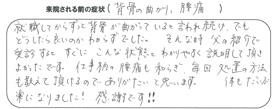 来院される前の症状（背骨の曲がり、腰痛）
就職してからずっと背骨が曲がっていると言われ続け、でも
どうしたら良いのかわからずでした。そんな時父の紹介で
受診すると、すぐにこんな状態とわかりやすく説明して頂き
よかったです。仕事柄の腰痛も和らぎ毎回処置の方法
も教えて頂けるのでありがたいと思います。 体もだいぶ
楽になりました!! 感謝です!!